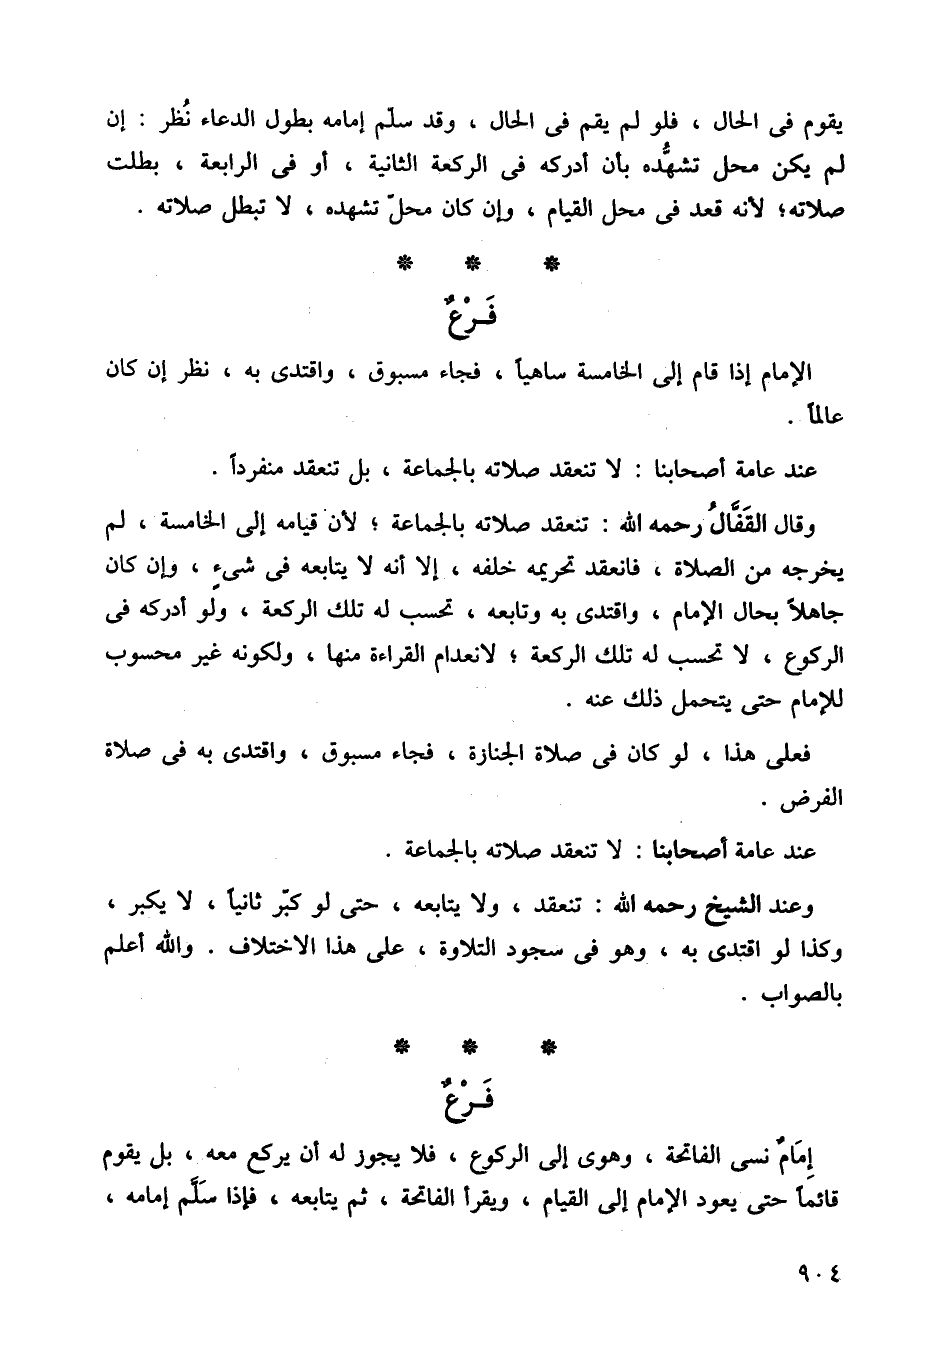 يقوم فى الحال ، فلو لم يقم فى الحال ، وقد سلّم إمامه بطول الدعاء نُظر : إن
لم يكن محل تشهُّده بأن أدركه فى الركعة الثانية ، أو فى الرابعة ، بطلت
صلاته؛ لأنه قعد فى محل القيام ، وإن كان محلّ تشهده ، لا تبطل صلاته .
* * *
فَرْعٌ
الإمام إذا قام إلى الخامسة ساهياً ، فجاء مسبوق ، واقتدى به ، نظر إن كان
عالماً .
عند عامة أصحابنا : لا تنعقد صلاته بالجماعة ، بل تنعقد منفرداً .
وقال القَفَّالُ رحمه الله : تنعقد صلاته بالجماعة ؛ لأن قيامه إلى الخامسة ، لم
يخرجه من الصلاة ، فانعقد تحريمه خلفه ، إلا أنه لا يتابعه فى شىءٍ ، وإن كان
جاهلاً بحال الإمام ، واقتدى به وتابعه ، تحسب له تلك الركعة ، ولو أدركه فى
الركوع ، لا تحسب له تلك الركعة ؛ لانعدام القراءة منها ، ولكونه غير محسوب
للإمام حتى يتحمل ذلك عنه .
فعلى هذا ، لو كان فى صلاة الجنازة ، فجاء مسبوق ، واقتدى به فى صلاة
الفرض .
عند عامة أصحابنا : لا تنعقد صلاته بالجماعة .
وعند الشيخ رحمه الله : تنعقد ، ولا يتابعه ، حتى لو كبّر ثانياً ، لا يكبر ،
وكذا لو اقتدى به ، وهو فى سجود التلاوة ، على هذا الاختلاف . والله أعلم
بالصواب .
* * *
فَرْعٌ
إِمَامٌ نسى الفاتحة ، وهوى إلى الركوع ، فلا يجوز له أن يركع معه ، بل يقوم
قائماً حتى يعود الإمام إلى القيام ، ويقرأ الفاتحة ، ثم يتابعه ، فإذا سَلَّم إمامه ،
٩٠٤